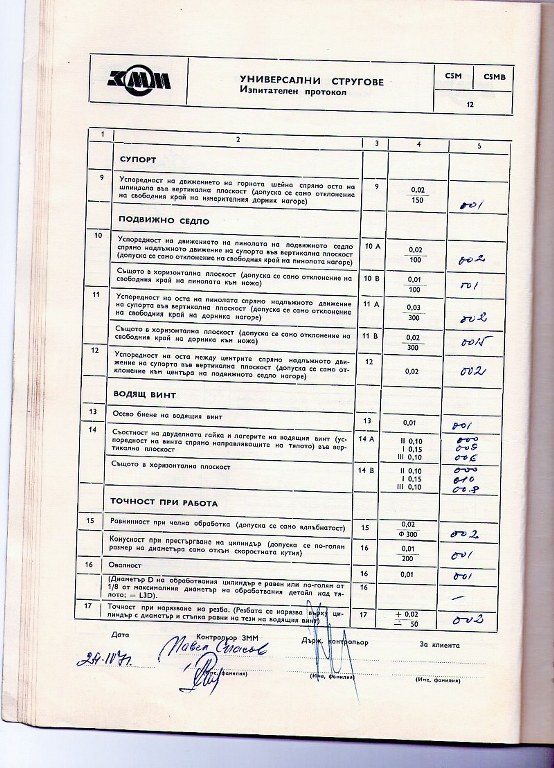 ЗММ
УНИВЕРСАЛНИ СТРУГОВЕ
Изпитателен протокол
C5M C5MB
12
1 2 3 4 5
СУПОРТ
9 Успоредност на движението на горната шейна спрямо оста на 9 0,02
шпиндела във вертикална плоскост (допуска се само отклонение 150 001
на свободния край на измерителния дорник нагоре)
ПОДВИЖНО СЕДЛО
10 Успоредност на движението на пинолата на подвижното седло 10 А 0,02
спрямо надлъжното движение на супорта във вертикална плоскост 100 002
(допуска се само отклонение на свободния край на пинолата нагоре)
Същото в хоризонтална плоскост (допуска се само отклонение на 10 В 0,01 001
свободния край на пинолата към ножа) 100
11 Успоредност на оста на пинолата спрямо надлъжното движение 11 А 0,03
на супорта във вертикална плоскост (допуска се само отклонение 300 002
на свободния край на дорника нагоре)
Същото в хоризонтална плоскост (допуска се само отклонение на 11 В 0,02 0015
свободния край на дорника към ножа) 300
12 Успоредност на оста между центрите спрямо надлъжното дви- 12
жение на супорта във вертикална плоскост (допуска се само от- 0,02 002
клонение към центъра на подвижното седло нагоре)
ВОДЯЩ ВИНТ
13 Осево биене на водящия винт 13 0,01 001
14 Съосност на двуделната гайка и лагерите на водящия винт (ус- 14 А II 0,10 000
поредност на винта спрямо направляващите на тялото) във вер- I 0,15 008
тикална плоскост III 0,10 006
Същото в хоризонтална плоскост 14 В II 0,10 000
I 0,15 010
III 0,10 008
ТОЧНОСТ ПРИ РАБОТА
15 Равнинност при челна обработка (допуска се само вдлъбнатост) 15 0,02
Ф 300 002
Конусност при престъргване на цилиндър (допуска се по-голям 16 0,01
размер на диаметъра само откъм скоростната кутия) 200 001
16 Овалност 16 0,01 001
(Диаметър D на обработвания цилиндър е равен или по-голям от 16
1/8 от максималния диаметър на обработвания детайл над тя- —
лото; = L3D).
17 Точност при нарязване на резба. (Резбата се нарязва върху ци- 17 + 0,02
линдър с диаметър и стъпка равни на тези на водящия винт) — 50 002
Дата Контрольор ЗММ Държ. контрольор За клиента
Павел Спасов
(Име, фамилия) (Име, фамилия) (Име, фамилия)